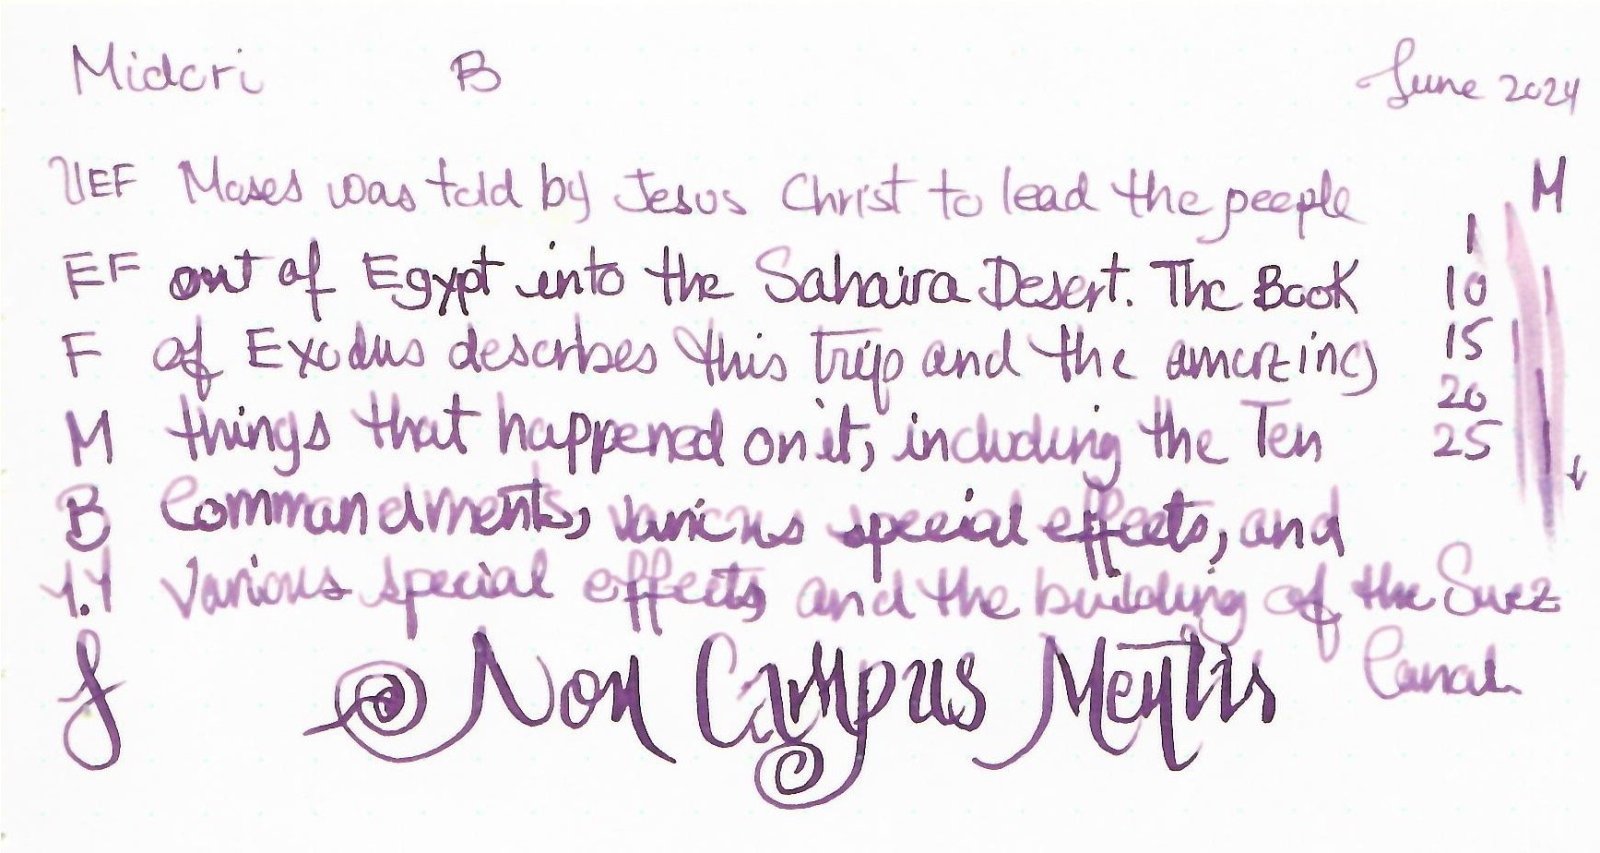 Midori B June 2024
UEF Moses was told by Jesus Christ to lead the people M
EF out of Egypt into the Sahaira Desert. The Book
F of Exodus describes this trip and the amazing
M things that happened on it, including the Ten
B Commandments, various special effects, and
1.1 Various special effects and the building of the Suez
Canal
J Non Campus Mentis
1
10
15
20
25